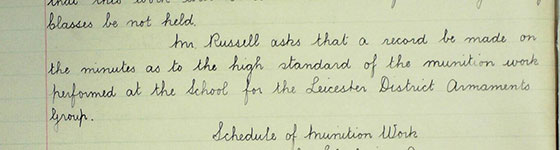 that this work
classes be not held.
Mr. Russell asks that a record be made on
the minutes as to the high standard of the munition work
performed at the School for the Leicester District Armaments
Group.
Schedule of Munition Work